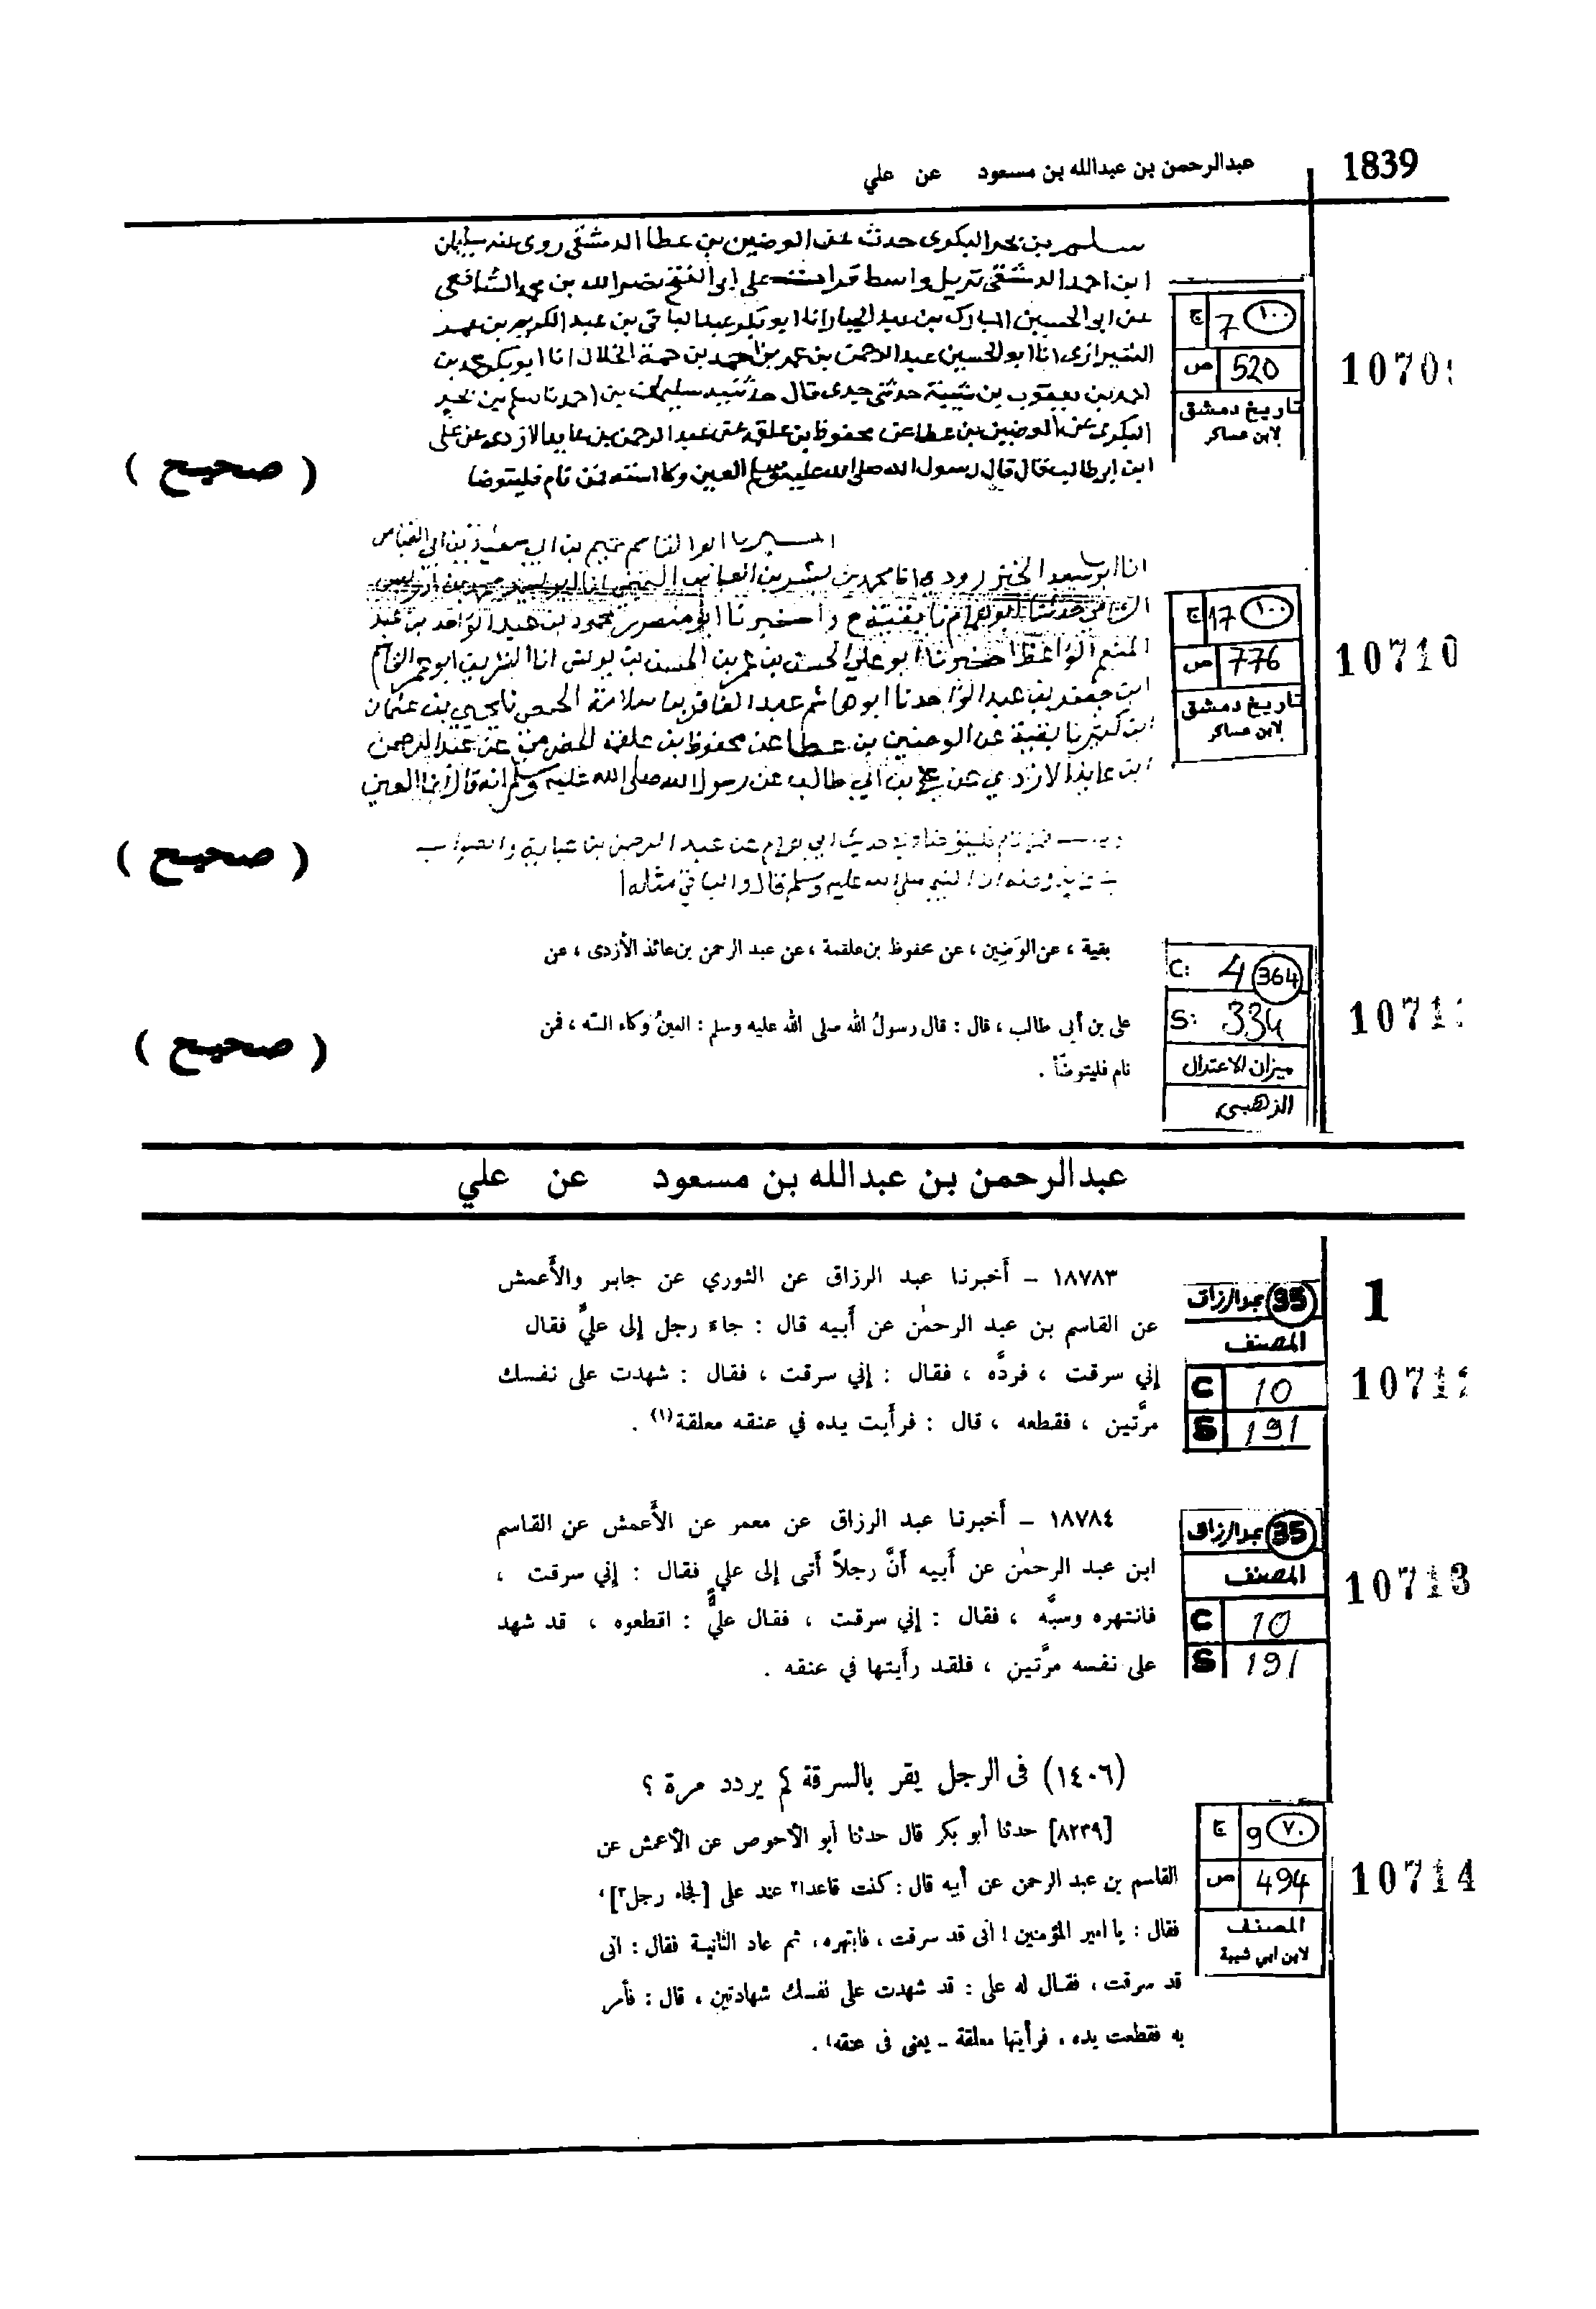 1839
عبدالرحمن بن عبدالله بن مسعود عن علي
سلم بن بحر البكرى حدث عن الوضين بن عطا الدمشقى روى عنه سليمان
ابن احمد الدمشقى نزيل واسط قرات على ابى الفتح نصر الله بن محمد الشافعى
عن ابى الحسين المبارك بن عبد الجبار انا ابو بكر عبد الباقى بن عبد الكريم بن عمر
الشيرازى انا ابو الحسين عبد الرحمن بن عمر بن احمد بن حمة الخلال انا ابو بكر محمد بن
احمد بن يعقوب بن شيبة حدثنى جدى قال حدثنيه سليمان بن احمد نا سلم بن بحر
البكرى عن الوضين بن عطا عن محفوظ بن علقمة عن عبد الرحمن بن عايد الازدى عن على
ابن ابى طالب قال قال رسول الله صلى الله عليه وسلم العين وكا السته فمن نام فليتوضا
ج 7 ١٠٠
ص 520
تاريخ دمشق
لابن عساكر
1070
( صحيح )
ابو القاسم تميم بن ابى سعيد بن ابى العباس
انا ابو سعد الخنزرودى انا محمد بن بشر بن العباس التميمى انا ابو لبيد محمد بن ادريس
حدثنا ابو نا بقية ح واخبرنا ابو منصور محمود بن عبد الواحد بن عبد
المنعم الواعظ اخبرنا ابو علي الحسن بن عمر بن الحسن بن يونس انا الشريف ابو عمر القاسم
ابن جعفر بن عبد الواحد نا ابو هاشم عبد الغافر بن سلامة الحمصى نا يحيى بن عثمان
ابن كثير نا بقية عن الوضين بن عطا عن محفوظ بن علقمة الحضرمي عن عبد الرحمن
ابن عايذ الازدي عن علي بن أبي طالب عن رسول الله صلى الله عليه وسلم انه قال انما العين
فمن نام فليتوضا وفى حديث ابي عن عبد الرحمن بن والصواب
ان النبى صلى الله عليه وسلم قال والباقي مثله
ج 17 ١٠٠
ص 776
تاريخ دمشق
لابن عساكر
10710
( صحيح )
بقية ، عن الوَضِين ، عن محفوظ بن علقمة ، عن عبد الرحمن بن عائذ الأزدى ، عن
على بن أبى طالب ، قال : قال رسولُ الله صلى الله عليه وسلم : العينُ وكاء السَّه ، فمن
نام فليتوضّأ .
C: 4 364
S: 334
ميزان الاعتدال
الذهبي
1071
( صحيح )
عبدالرحمن بن عبدالله بن مسعود عن علي
١٨٧٨٣ – أَخبرنا عبد الرزاق عن الثوري عن جابر والأَعمش
عن القاسم بن عبد الرحمٰن عن أَبيه قال : جاءَ رجل إلى عليٍّ فقال
إني سرقت ، فردَّه ، فقال : إني سرقت ، فقال : شهدت على نفسك
مرَّتين ، فقطعه ، قال : فرأَيت يده في عنقه معلقة(١) .
35 عبد الرزاق
المصنف
C 10
S 191
1
1071
١٨٧٨٤ – أَخبرنا عبد الرزاق عن معمر عن الأَعمش عن القاسم
ابن عبد الرحمٰن عن أَبيه أَنَّ رجلاً أَتى إلى علي فقال : إني سرقت ،
فانتهره وسبَّه ، فقال : إني سرقت ، فقال عليٌّ : اقطعوه ، قد شهد
على نفسه مرَّتين ، فلقد رأَيتها في عنقه .
35 عبد الرزاق
المصنف
C 10
S 191
10713
(١٤٠٦) فى الرجل يقر بالسرقة كم يردد مرة ؟
[٨٢٣٩] حدثنا أبو بكر قال حدثنا أبو الأحوص عن الأعمش عن
القاسم بن عبد الرحمن عن أبيه قال : كنت قاعدا٢ عند على [فجاء رجل٣]،
فقال : يا امير المؤمنين ! انى قد سرقت ، فانتهره، ثم عاد الثانية فقال : انى
قد سرقت ، فقال له على : قد شهدت على نفسك شهادتين ، قال : فأمر
به فقطعت يده ، فرأيتها معلقة – يعنى فى عنقه٤ .
ج 9 ٧٠
ص 494
المصنف
لابن ابي شيبة
10714